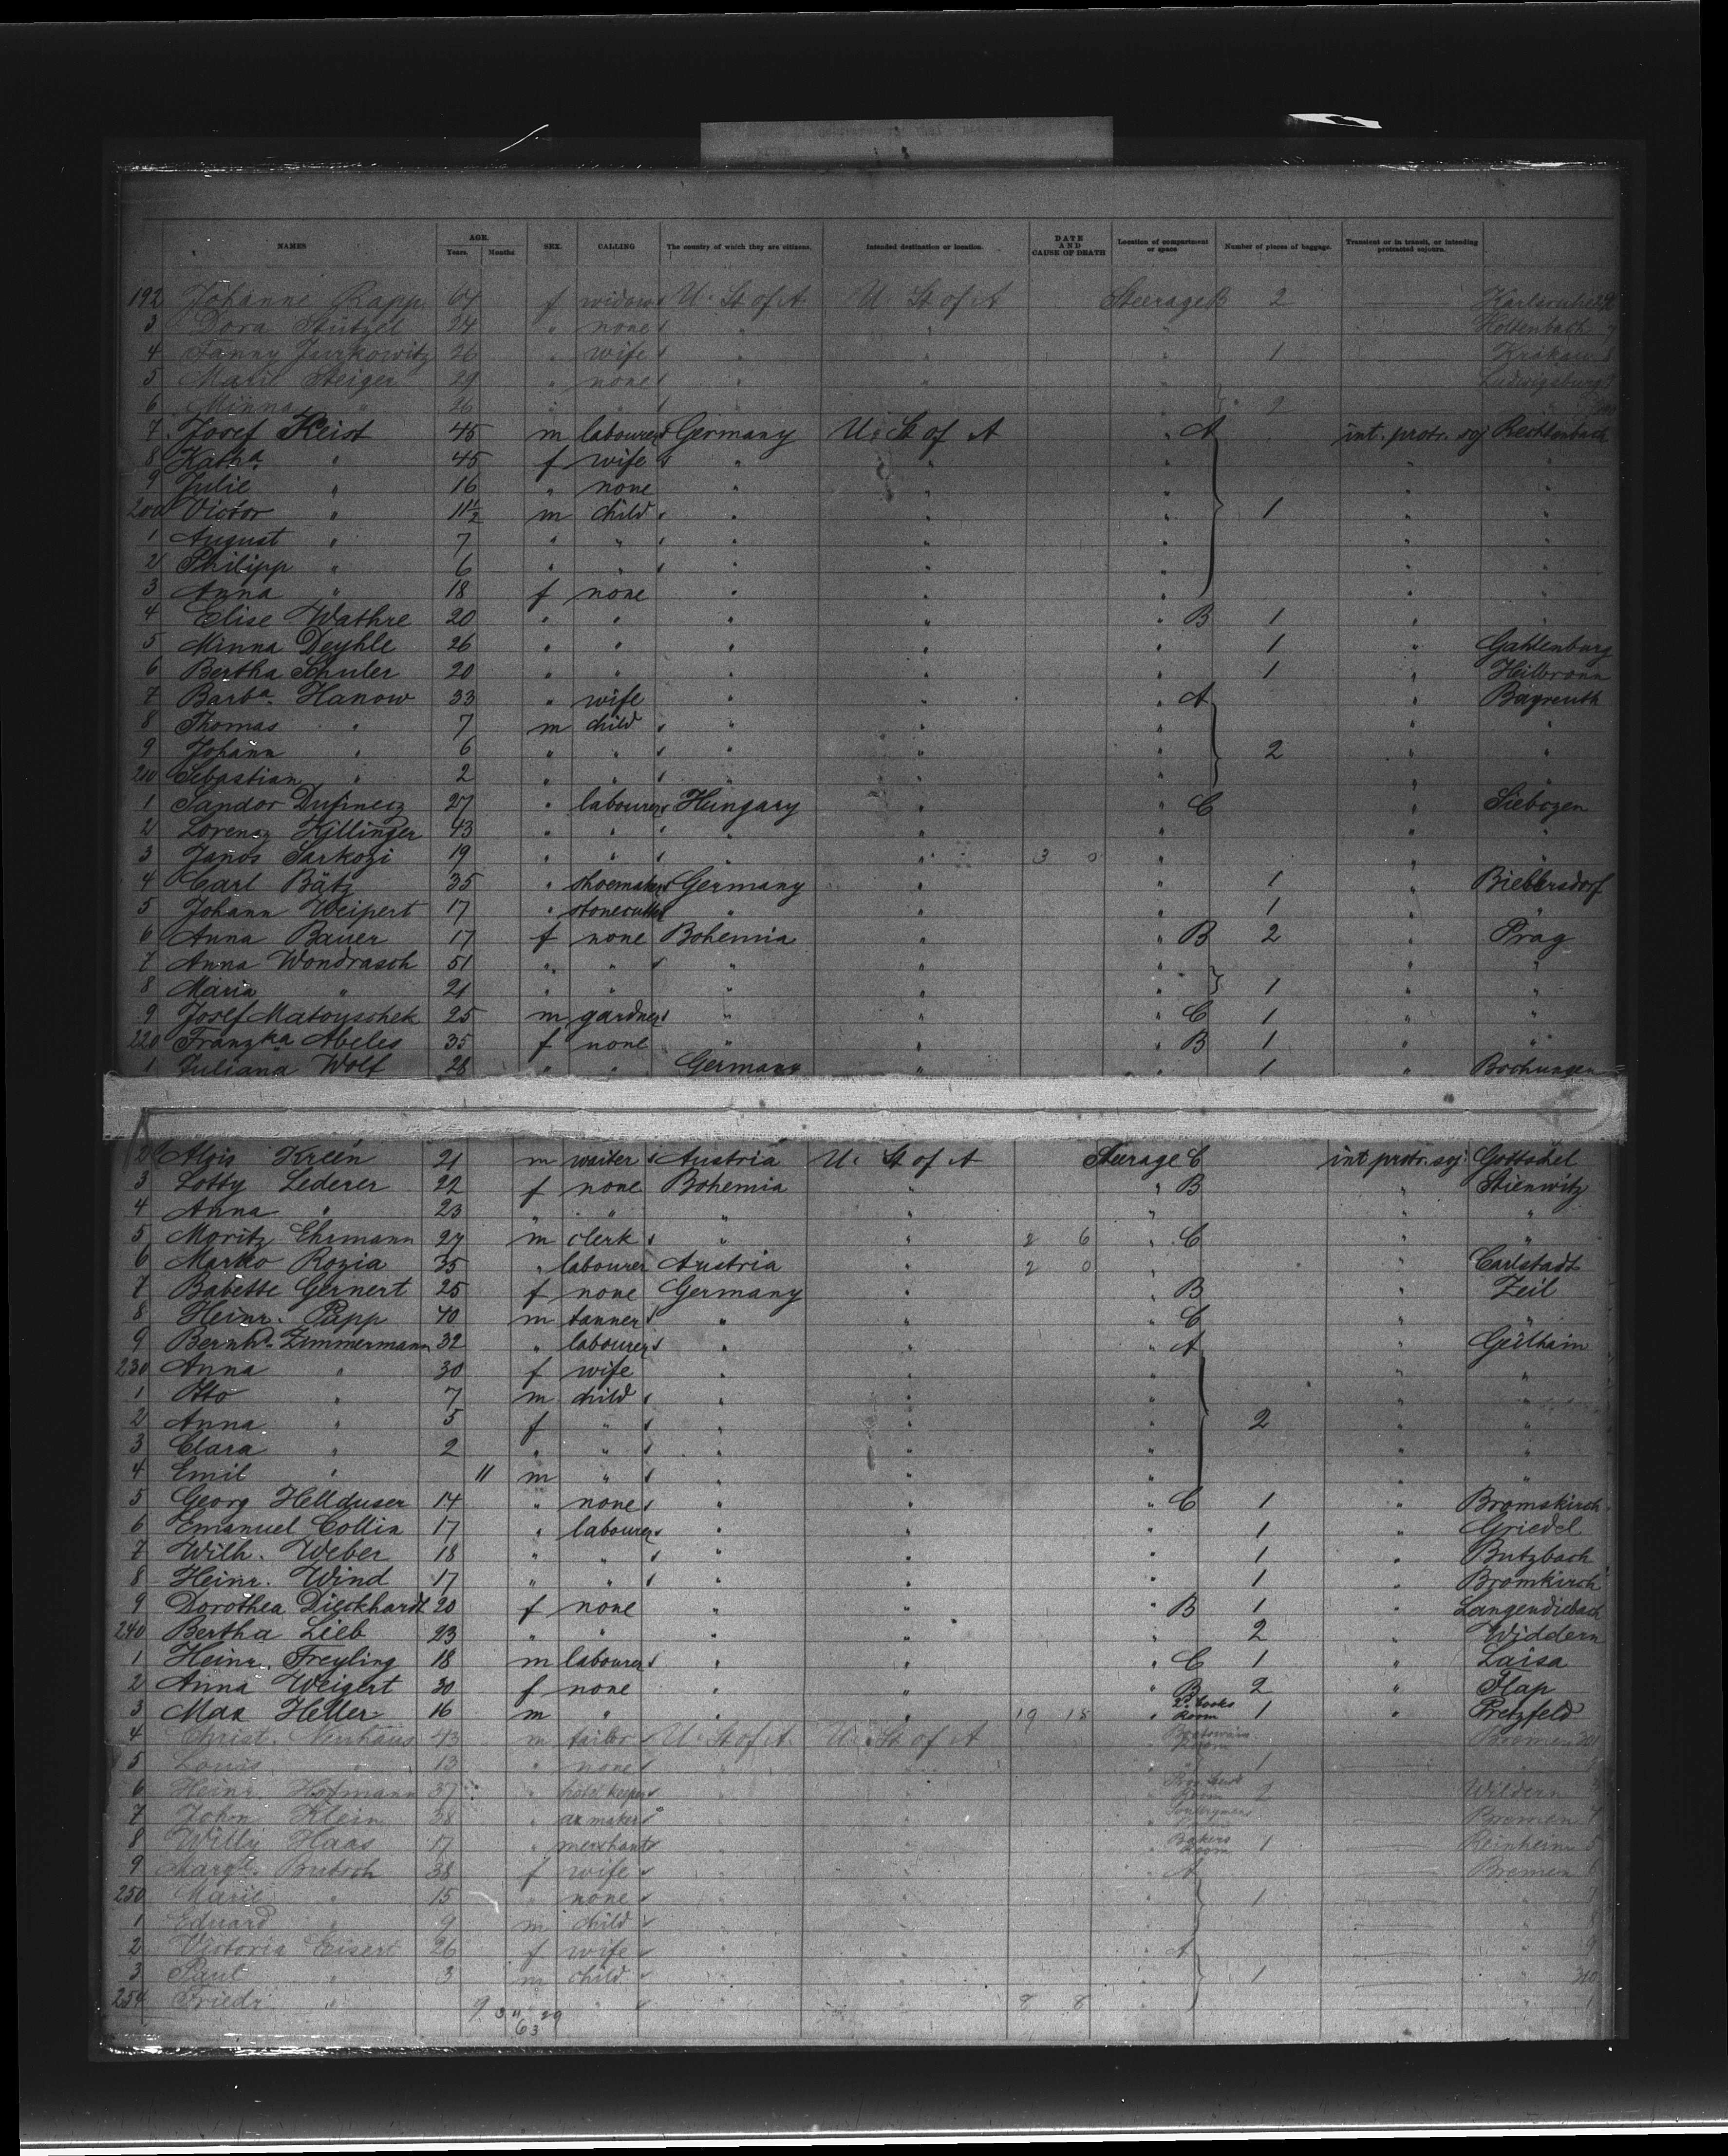 NAMES AGE. Years. Months SEX. CALLING The country of which they are citizens. Intended destination or location. DATE AND CAUSE OF DEATH Location of compartment or space Number of pieces of baggage. Transient or in transit, or intending protracted sojourn.
192 Johanne Rapp 64 f widow U. St of A. U. St of A Steerage B 2
3 Dora Stützel 24 " none " " " Holtenbach
4 Fanny Jurkowitz 26 " wife " " " 1 Krakau
5 Marie Steiger 29 " none " " " Ludwigsburg
6 Minna " 26 " " " 2
7 Josef Keist 45 m labourer Germany U. St of A " A int. protr. soj Rechtenbach
8 Katha " 45 f wife " " " " "
9 Julie " 16 " none " " " " "
200 Victor " 11½ m child " " " 1 " "
1 August " 7 " " " " " " "
2 Philipp " 6 " " " " " " "
3 Anna " 18 f none " " " " "
4 Elise Wathre 20 " " " " " B 1 " "
5 Minna Deyhle 26 " " " " " 1 " Gahlenburg
6 Bertha Schuler 20 " " " " " 1 " Heilbronn
7 Barba. Hanow 33 " wife " " " A " Bayreuth
8 Thomas " 7 m child " " " " "
9 Johann " 6 " " " " " 2 " "
210 Sebastian " 2 " " " " " " "
1 Sandor 27 " labourer Hungary " " C " Siebozen
2 Lorenz Killinger 43 " " " " " " "
3 Janos Sarkozi 19 " " " " 3 0 " " "
4 Carl Bätz 35 " shoemaker Germany " " 1 " Biebersdorf
5 Johann Weipert 17 " stonecutter " " " 1 " "
6 Anna Bauer 17 f none Bohemia " " B 2 " Prag
7 Anna Wondrasch 51 " " " " " " "
8 Maria " 21 " " " " " 1 " "
9 Josef Matouschek 25 m gardner " " " C 1 " "
220 Franzka Abeles 35 f none " " " B 1 " "
1 Juliana Wolf 28 " " Germany " " 1 " Bochungen
2 Alois Kreen 21 m waiter Austria U. St of A Steerage C int protr. soj. Gottschel
3 Lotty Lederer 22 f none Bohemia " " B " Stienwitz
4 Anna " 23 " " " " " " "
5 Moritz Ehrmann 27 m clerk " " 2 6 " C " "
6 Marko Rozia 35 " labourer Austria " 2 0 " " Carlstadt
7 Babette Gernert 25 f none Germany " " B " Zeil
8 Heinr. Papp 40 m tanner " " " C " "
9 Bernhd. Zimmermann 32 " labourer " " " A "
230 Anna " 30 f wife " " " " "
1 Otto " 7 m child " " " " "
2 Anna " 5 f " " " " 2 " "
3 Clara " 2 " " " " " " "
4 Emil " 11 m " " " " " "
5 Georg Hellduser 14 " none " " " C 1 " Bromskirch
6 Emanuel Collin 17 " labourer " " " 1 " Griedel
7 Wilh. Weber 18 " " " " " 1 " Butzbach
8 Heinr. Wind 17 " " " " " 1 " Bromkirch
9 Dorothea Dieckhardt 20 f none " " " B 1 " Langendiebach
240 Bertha Lieb 23 " " " " " 2 " Widdern
1 Heinr. Freyling 18 m labourer " " " C 1 " Laisa
2 Anna Weigert 30 f none " " " B 2 " Flap
3 Max Heller 16 m " " " 19 18 " 2d. Cooks Room 1 " Pretzfeld
4 Christ. Neuhaus 43 m tailor U. St of A. U. St of A Room Bremen 301
5 Louis " 13 " none " " 1 "
6 Heinr. Hofmann 37 " hotel keeper " " Room 2 Widdern
7 John Klein 38 " " " Bremen
8 Willy Haas 17 " merchant " " Bakers Room 1 Reinheim 5
9 Margt. Butsch 38 f wife " " " A Bremen 6
250 Marie " 15 " none " " " 1 "
1 Eduard " 9 m child " " " "
2 Victoria Eisert 26 f wife " " " A " 9
3 Paul " 3 m child " " " 1 " 310
254 Friedr. " 9 " " 8 8 " " 1